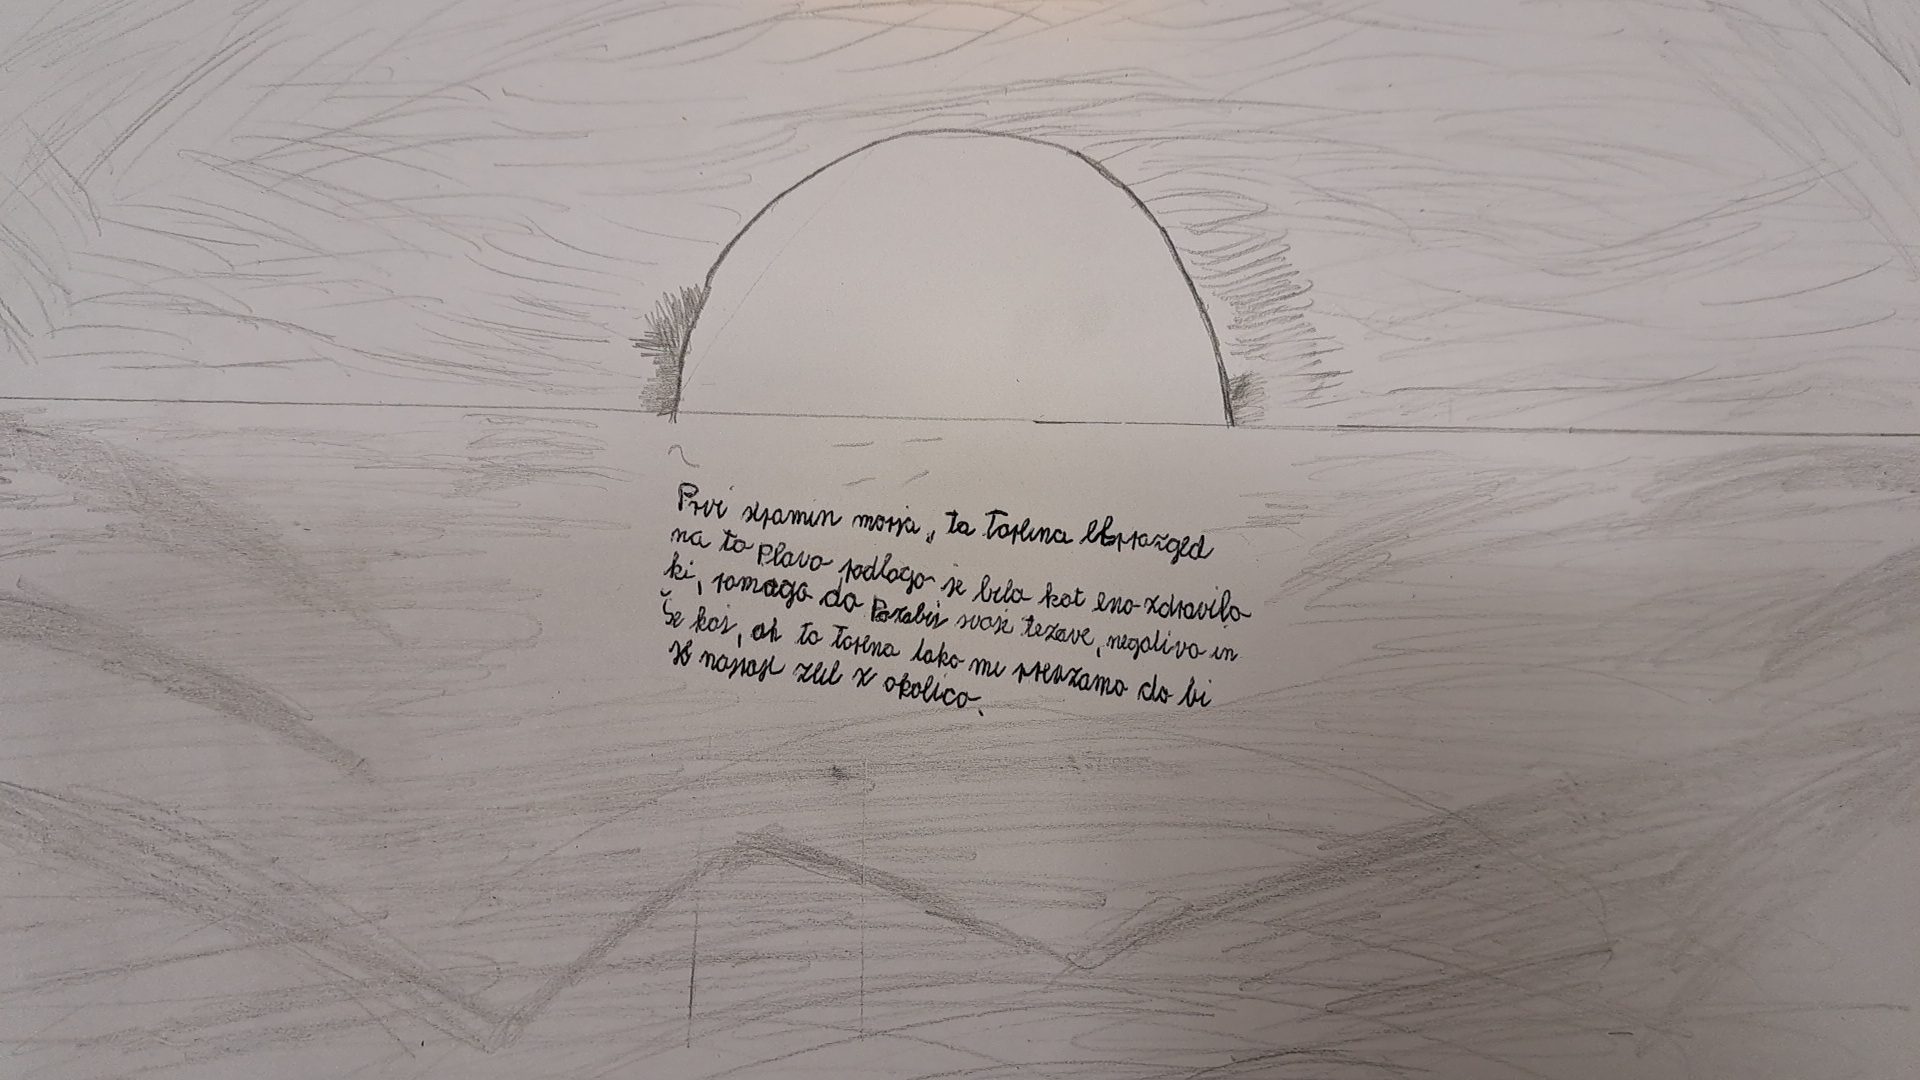 Prvi spomin morja, ta topena razgled
na to plavo podlago je bila kot eno zdravilo
ki, pomaga da Pozabiš svoje težave, negativo in
še kaj, ah ta topena tako me prevzama da bi
jo napopal z okolico.